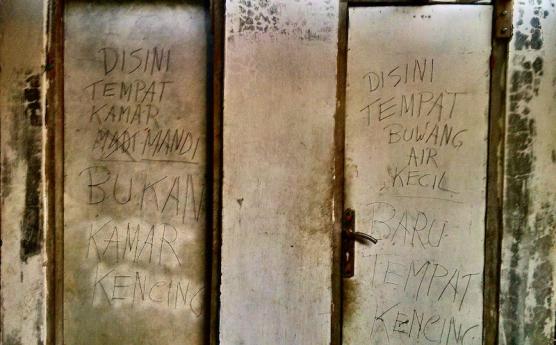 DISINI
TEMPAT
KAMAR
MANDI
BUKAN
KAMAR
KENCING
DISINI
TEMPAT
BUWANG
AIR
KECIL
BARU
TEMPAT
KENCING